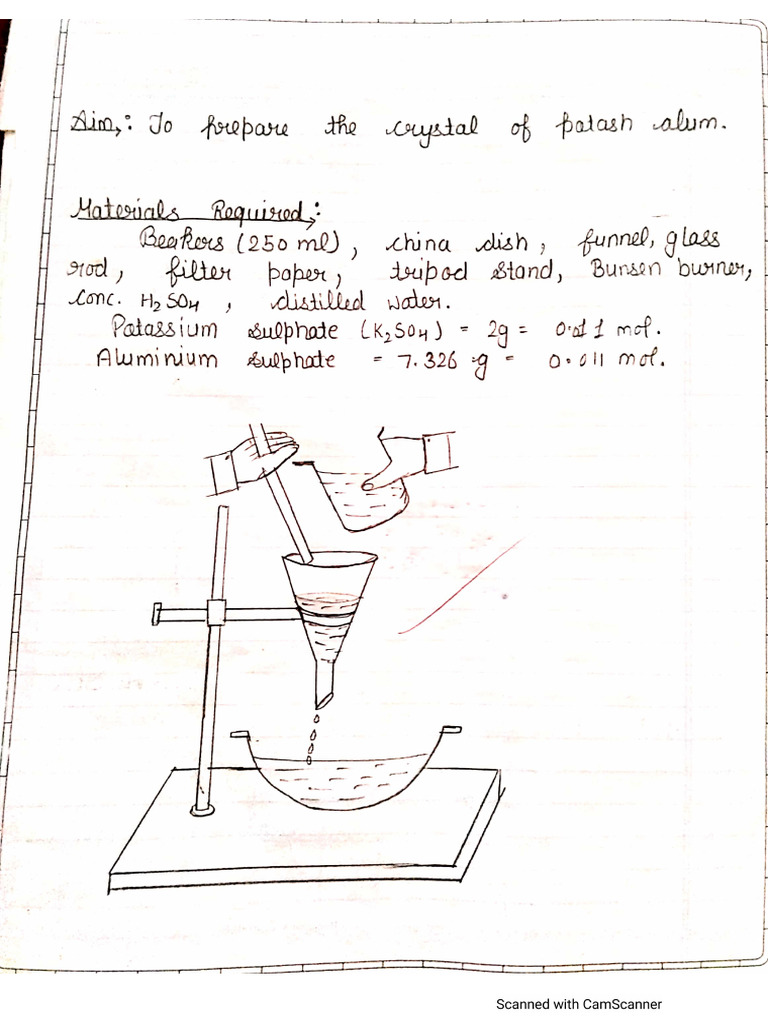 Aim,: To prepare the crystal of potash alum.
Materials Required,:
Beakers (250 ml), china dish, funnel, glass
rod, filter paper, tripod stand, Bunsen burner,
conc. H₂SO₄, distilled water.
Potassium sulphate (K₂SO₄) = 2g = 0.011 mol.
Aluminium sulphate = 7.326 g = 0.011 mol.
Scanned with CamScanner